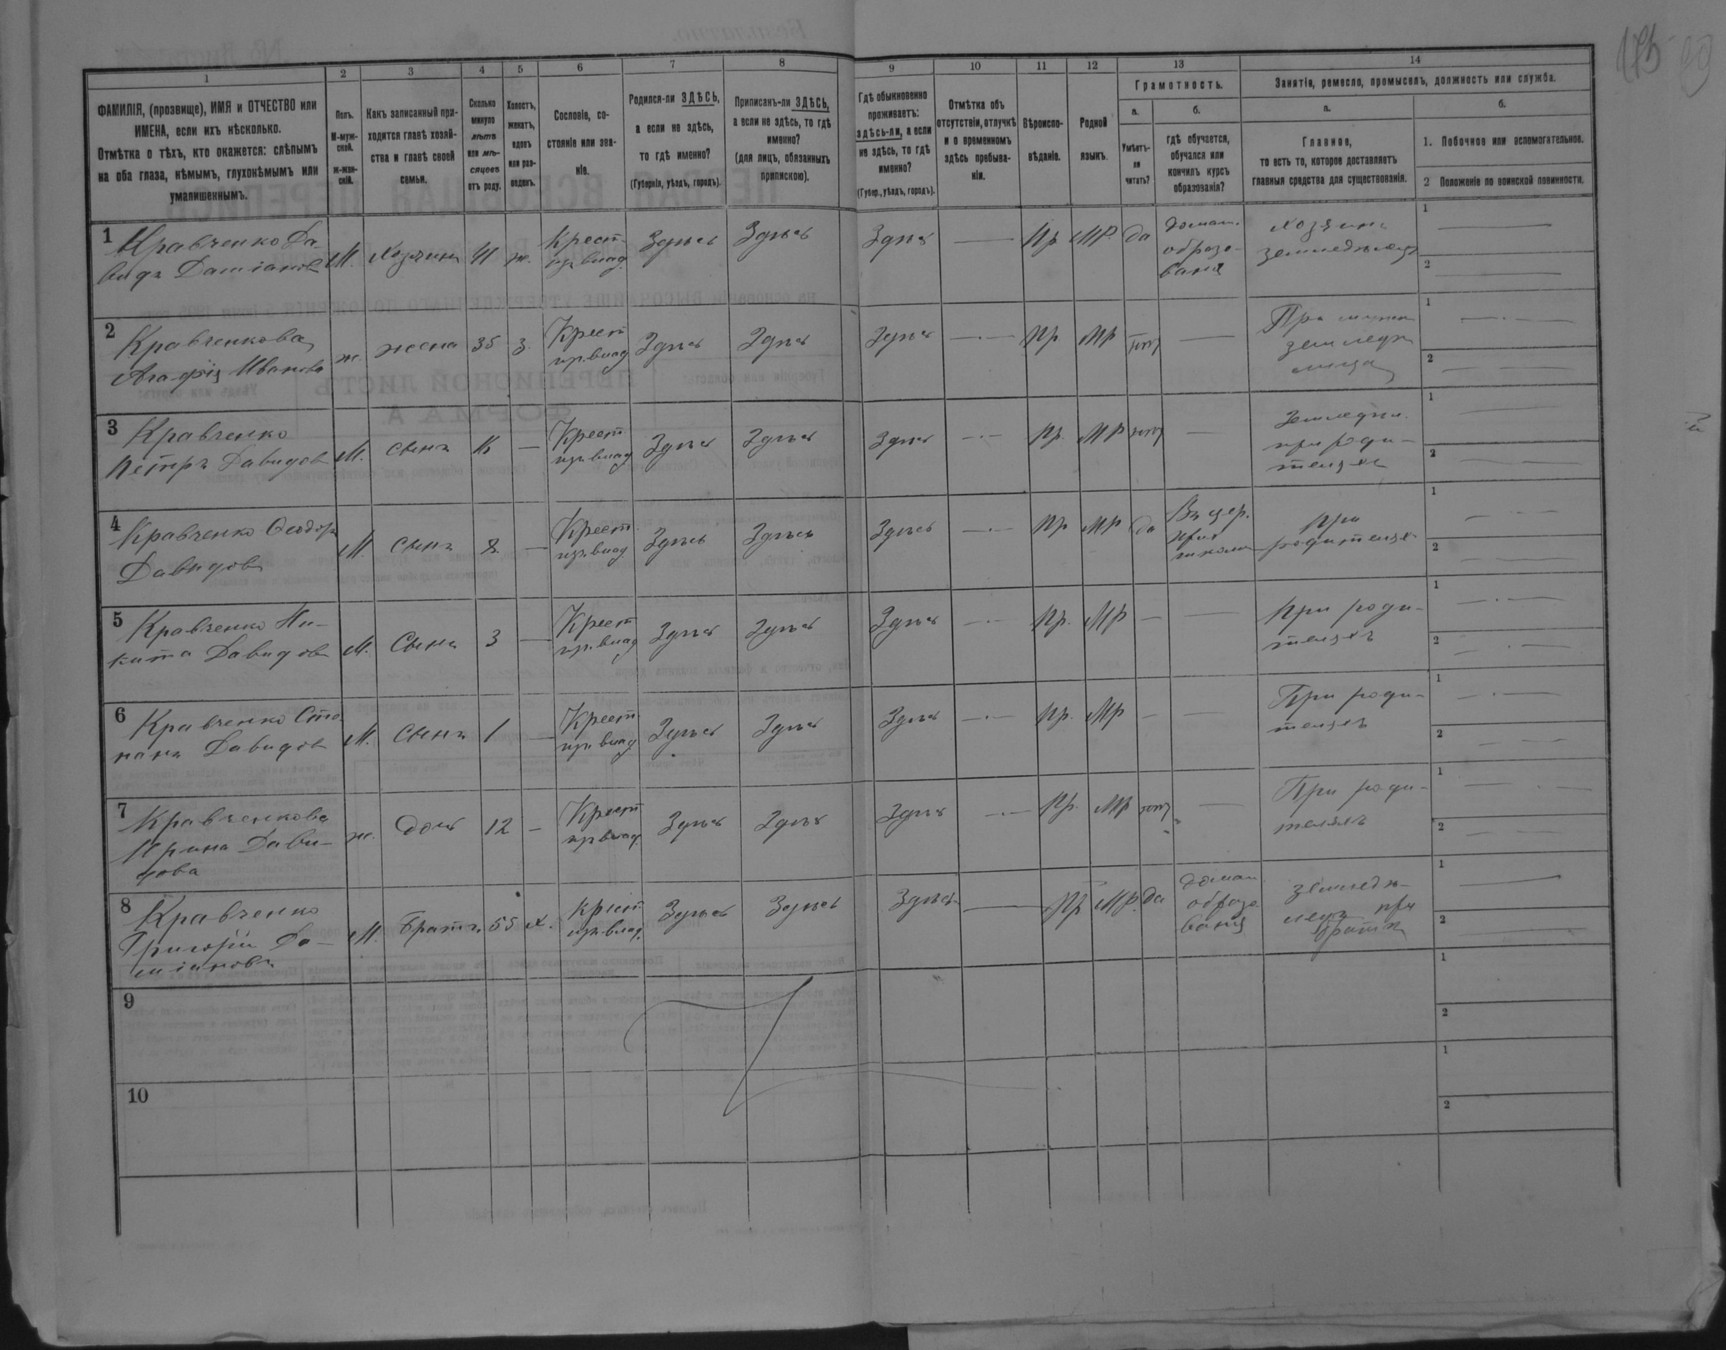 175
1 2 3 4 5 6 7 8 9 10 11 12 13 14
ФАМИЛІЯ, (прозвище), ИМЯ и ОТЧЕСТВО или
ИМЕНА, если ихъ нѣсколько.
Отмѣтка о тѣхъ, кто окажется: слѣпымъ
на оба глаза, нѣмымъ, глухонѣмымъ или
умалишеннымъ.
Полъ.
М-муж-
ской.
Ж-жен-
скій.
Какъ записанный при-
ходится главѣ хозяй-
ства и главѣ своей
семьи.
Сколько
минуло
лѣтъ
или мѣ-
сяцевъ
отъ роду.
Холостъ,
женатъ,
вдовъ
или раз-
веденъ.
Сословіе, со-
стояніе или зва-
ніе.
Родился-ли ЗДѢСЬ,
а если не здѣсь,
то гдѣ именно?
(Губернія, уѣздъ, городъ).
Приписанъ-ли ЗДѢСЬ,
а если не здѣсь, то гдѣ
именно?
(для лицъ, обязанныхъ
припискою).
Гдѣ обыкновенно
проживаетъ:
здѣсь-ли, а если
не здѣсь, то гдѣ
именно?
(Губер., уѣздъ, городъ).
Отмѣтка объ
отсутствіи, отлучкѣ
и о временномъ
здѣсь пребыва-
ніи.
Вѣроиспо-
вѣданіе.
Родной
языкъ.
Грамотность.
а.
Умѣетъ-
ли
читать?
б.
гдѣ обучается,
обучался или
кончилъ курсъ
образованія?
Занятія, ремесло, промыселъ, должность или служба.
а.
Главное,
то есть то, которое доставляетъ
главныя средства для существованія.
б.
1. Побочное или вспомогательное.
2 Положеніе по воинской повинности.
1 Кравченко Да-
видъ Даміановъ М. Хозяинъ 41 ж. Крест. из. влад. Здѣсь Здѣсь Здѣсь — Пр МР. да домаш. образо- ванія хозяинъ земледѣлецъ
1
2
2 Кравченкова
Агафія Иванова ж. жена 35 з. Крест из. влад Здѣсь Здѣсь Здѣсь — Пр МР нѣтъ — При мужѣ земледѣ
1
2
3 Кравченко
Петръ Давидовъ М. сынъ — Крест из. влад Здѣсь Здѣсь Здѣсь — Пр. МР нѣтъ — Земледѣл. при роди- теляхъ
1
2
4 Кравченко Ѳеодоръ
Давидовъ М сынъ — Крест. из. влад Здѣсь Здѣсь Здѣсь — Пр МР да Въ цер. прих школѣ При родителяхъ
1
2
5 Кравченко Ни-
кита Давидовъ М. Сынъ 3 — Крест из. влад Здѣсь Здѣсь Здѣсь — Пр. МР — — При роди- теляхъ
1
2
6 Кравченко Сте-
панъ Давидовъ М. Сынъ 1 — Крест из влад. Здѣсь Здѣсь Здѣсь — Пр. МР — — При роди- теляхъ
1
2
7 Кравченкова
Ирина Дави-
дова ж. дочь 12 — Крест из. влад. Здѣсь Здѣсь Здѣсь — Пр. МР нѣтъ — При роди- теляхъ
1
2
8 Кравченко
Григорій Да-
міановъ М. Братъ 55 х. Крест из. влад. Здѣсь Здѣсь Здѣсь — Пр МР. да домаш образо ванія земледѣ- лецъ при братѣ
1
2
9
1
2
10
1
2